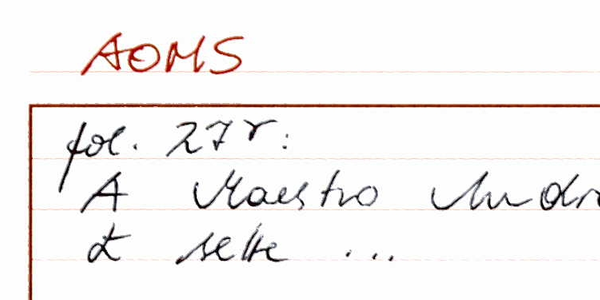 AOMS
fol. 27r:
A Maestro
£ sette ...